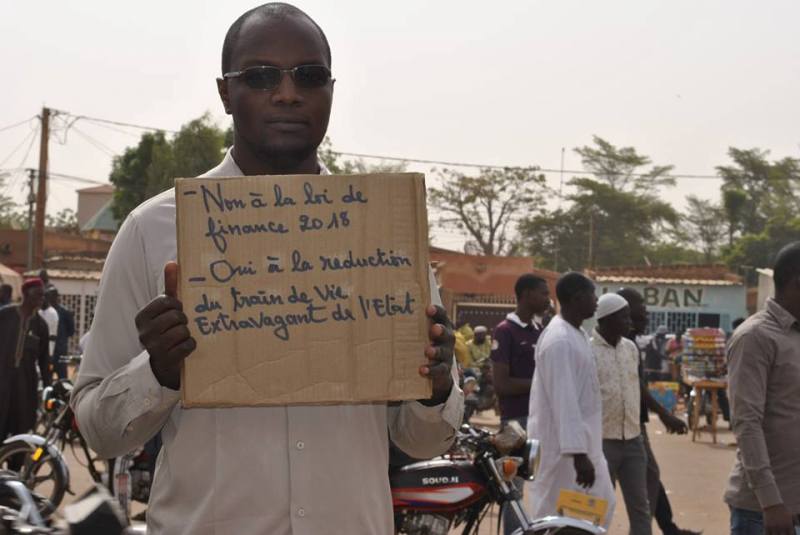 - Non à la loi de
finance 2018
- Oui à la reduction
du train de Vie
Extravagant de l'Etat
BAN
SOUD.N